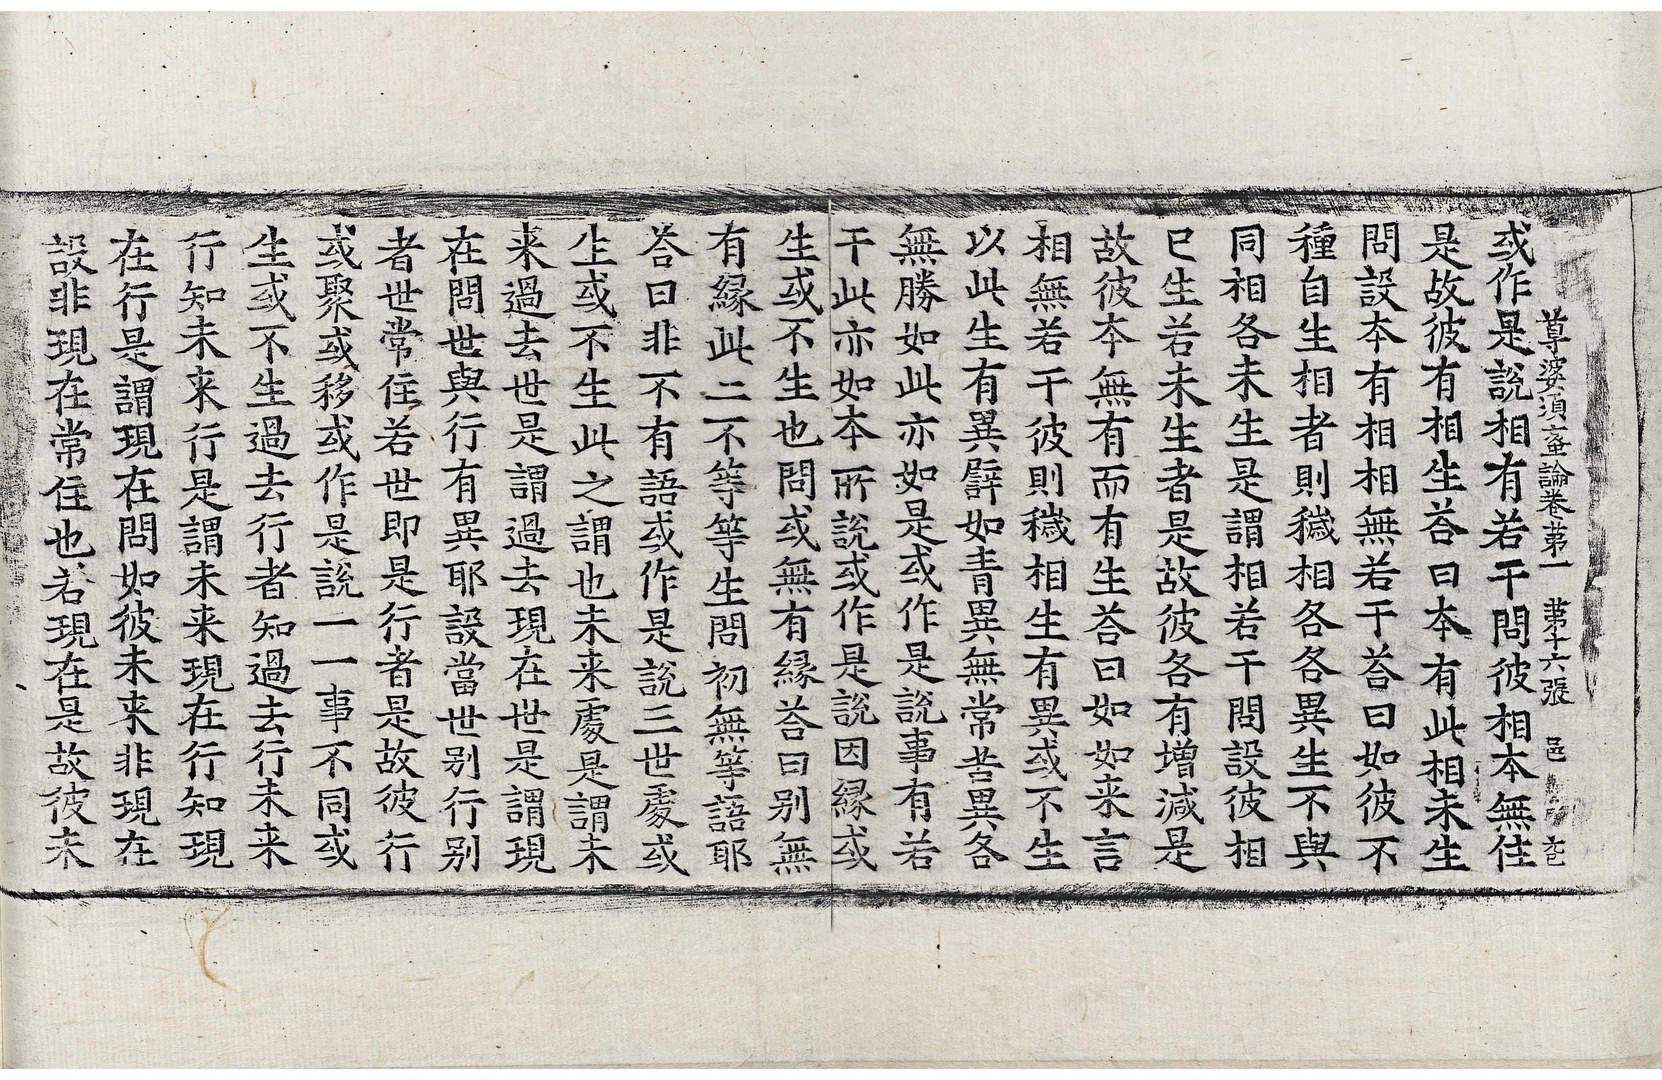 尊婆須蜜論卷苐一　苐十六張　邑
或作是說相有若干問彼相本無住
是故彼有相生荅曰本有此相未生
問設本有相相無若干荅曰如彼不
種自生相者則穢相各各異生不與
同相各未生是謂相若干問設彼相
已生若未生者是故彼各有增減是
故彼本無有而有生荅曰如如來言
相無若干彼則穢相生有異或不生
以此生有異譬如青異無常苦異各
無勝如此亦如是或作是說事有若
干此亦如本所說或作是說因緣或
生或不生也問或無有緣荅曰別無
有緣此二不等等生問初無等語耶
荅曰非不有語或作是說三世處或
生或不生此之謂也未来處是謂未
来過去世是謂過去現在世是謂現
在問世與行有異耶設當世別行別
者世常住若世即是行者是故彼行
或聚或移或作是說一一事不同或
生或不生過去行者知過去行未来
行知未来行是謂未来現在行知現
在行是謂現在問如彼未来非現在
設非現在常住也若現在是故彼未